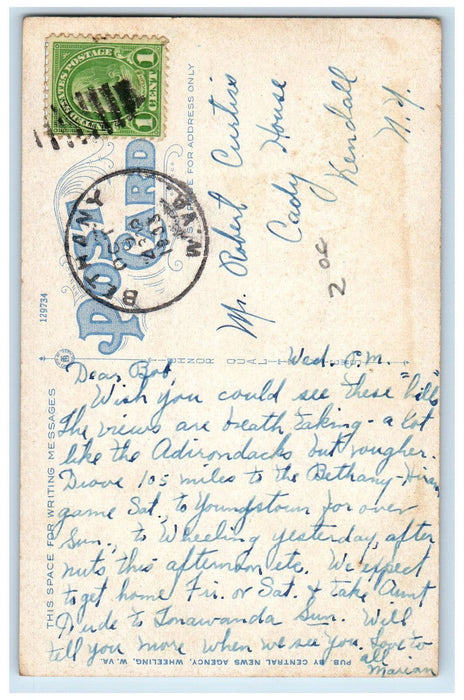 UNITED STATES POSTAGE
1 CENT 1
BETHANY
W.VA.
POST CARD
THIS SPACE FOR ADDRESS ONLY
Mr. Robert Curtiss
Cady House
Kendall
N.Y.
20c
129734
THIS SPACE FOR WRITING MESSAGES
Wed. P.M.
Dear Bob
Wish you could see these "hills"
The views are breath taking - a lot
like the Adirondacks but rougher.
Drove 105 miles to the Bethany-Hiram
game Sat., to Youngstown for over
Sun., to Wheeling yesterday, after
nuts this afternoon etc. We expect
to get home Fri. or Sat. & take Aunt
to Tonawanda Sun. Will
tell you more when we see you. Love to
all
Marian
PUB. BY CENTRAL NEWS AGENCY, WHEELING, W. VA.